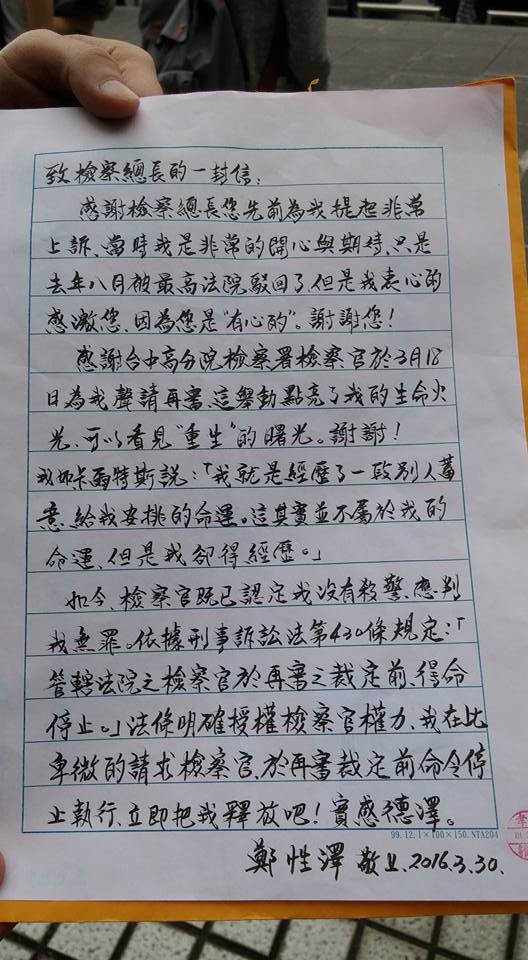 致檢察總長的一封信:
感謝檢察總長您先前為我提起非常
上訴、當時我是非常的開心與期待、只是
去年八月被最高法院駁回了、但是我衷心的
感激您、因為您是“有心的”。謝謝您!
感謝台中高分院檢察署檢察官於3月18
日為我聲請再審、這舉動點亮了我的生命火
光、可以看見“重生”的曙光。謝謝!
我如卡爾特斯說:「我就是經歷了一段別人蓄
意、給我安排的命運。這其實並不屬於我的
命運、但是我卻得經歷。」
如今、檢察官既已認定我沒有殺警、應判
我無罪。依據刑事訴訟法第430條規定:「
管轄法院之檢察官於再審之裁定前、得命
停止。」法條明確授權檢察官權力、我在此
卑微的請求檢察官、於再審裁定前命令停
止執行、立即把我釋放吧!實感德澤。
99.12.1×100×150.NTA204
鄭性澤 敬上.2016.3.30.